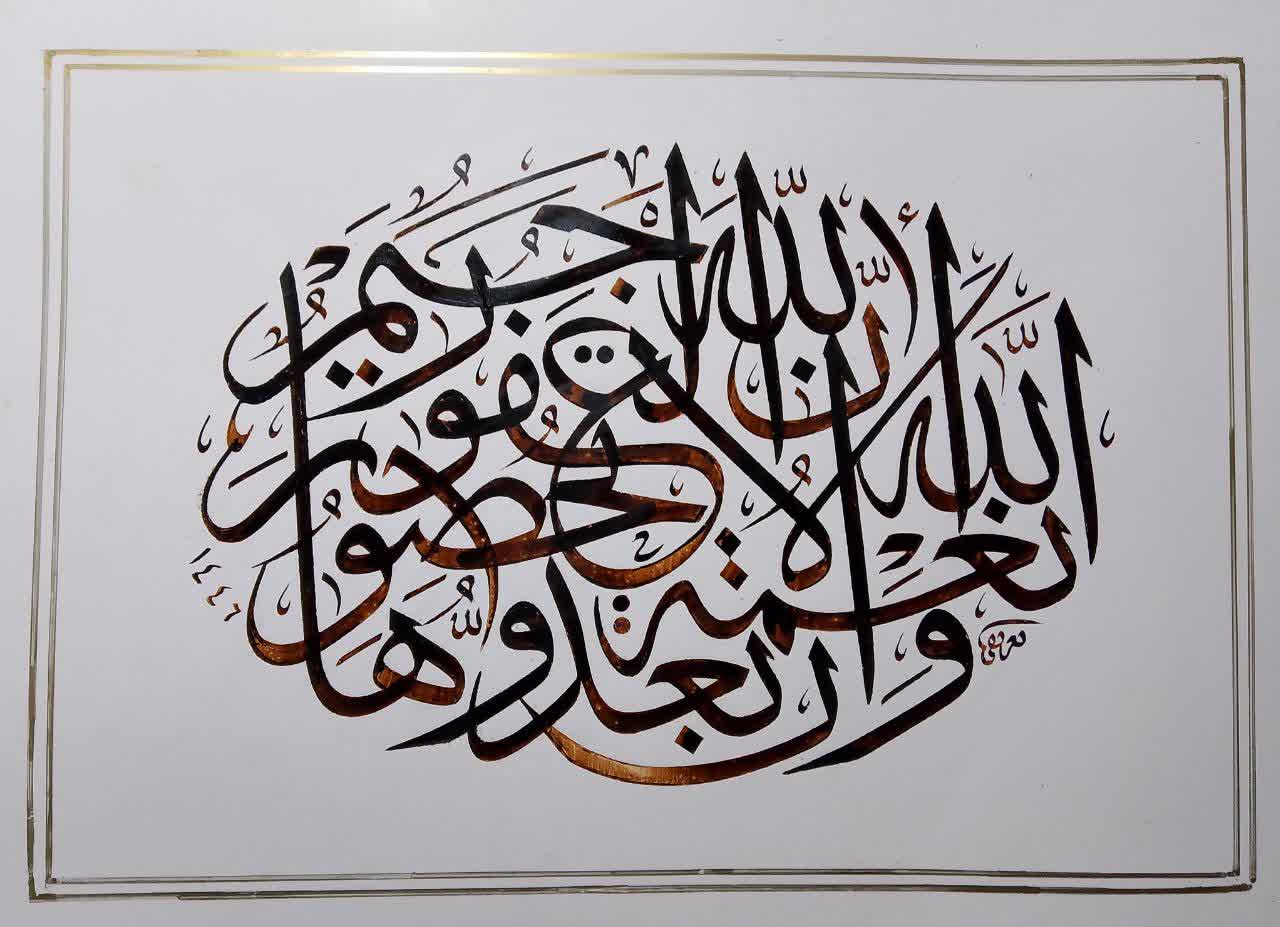 وَإِن تَعُدُّوا نِعْمَةَ اللَّهِ لَا تُحْصُوهَا إِنَّ اللَّهَ لَغَفُورٌ رَّحِيمٌ
١٤٤٦